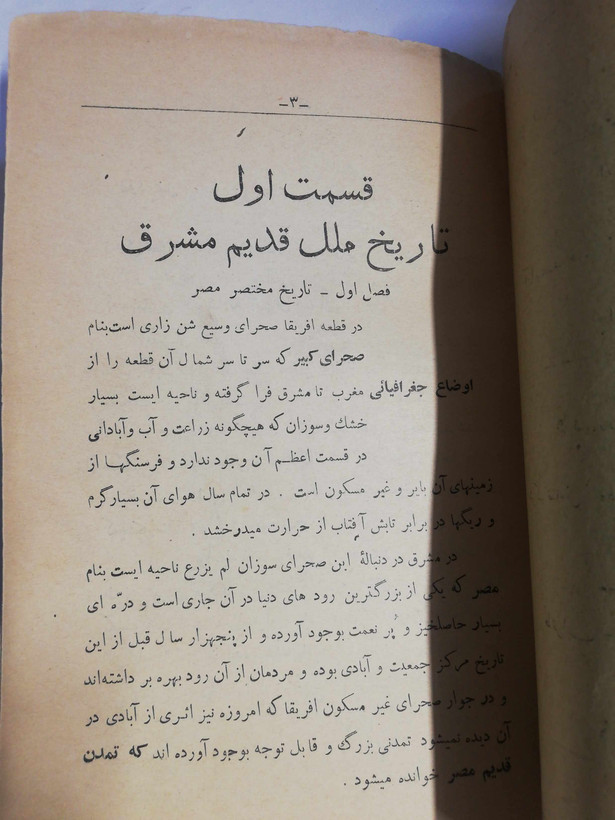 -۳-
قسمت اول
تاریخ ملل قدیم مشرق
فصل اول - تاریخ مختصر مصر
در قطعه افریقا صحرای وسیع شن زاری است بنام
صحرای کبیر که سر تا سر شمال آن قطعه را از
اوضاع جغرافیائی مغرب تا مشرق فرا گرفته و ناحیه ایست بسیار
خشك وسوزان که هیچگونه زراعت و آب وآبادانی
در قسمت اعظم آن وجود ندارد و فرسنگها از
زمینهای آن بایر و غیر مسکون است . در تمام سال هوای آن بسیارگرم
و ریگها در برابر تابش آفتاب از حرارت میدرخشد .
در مشرق در دنبالهٔ این صحرای سوزان لم یزرع ناحیه ایست بنام
مصر که یکی از بزرگترین رود های دنیا در آن جاری است و درّه ای
بسیار حاصلخیز و پُر نعمت بوجود آورده و از پنجهزار سال قبل از این
تاریخ مرکز جمعیت و آبادی بوده و مردمان از آن رود بهره بر داشته‌اند
و در جوار صحرای غیر مسکون افریقا که امروزه نیز اثری از آبادی در
آن دیده نمیشود تمدنی بزرگ و قابل توجه بوجود آورده اند که تمدن
قدیم مصر خوانده میشود .